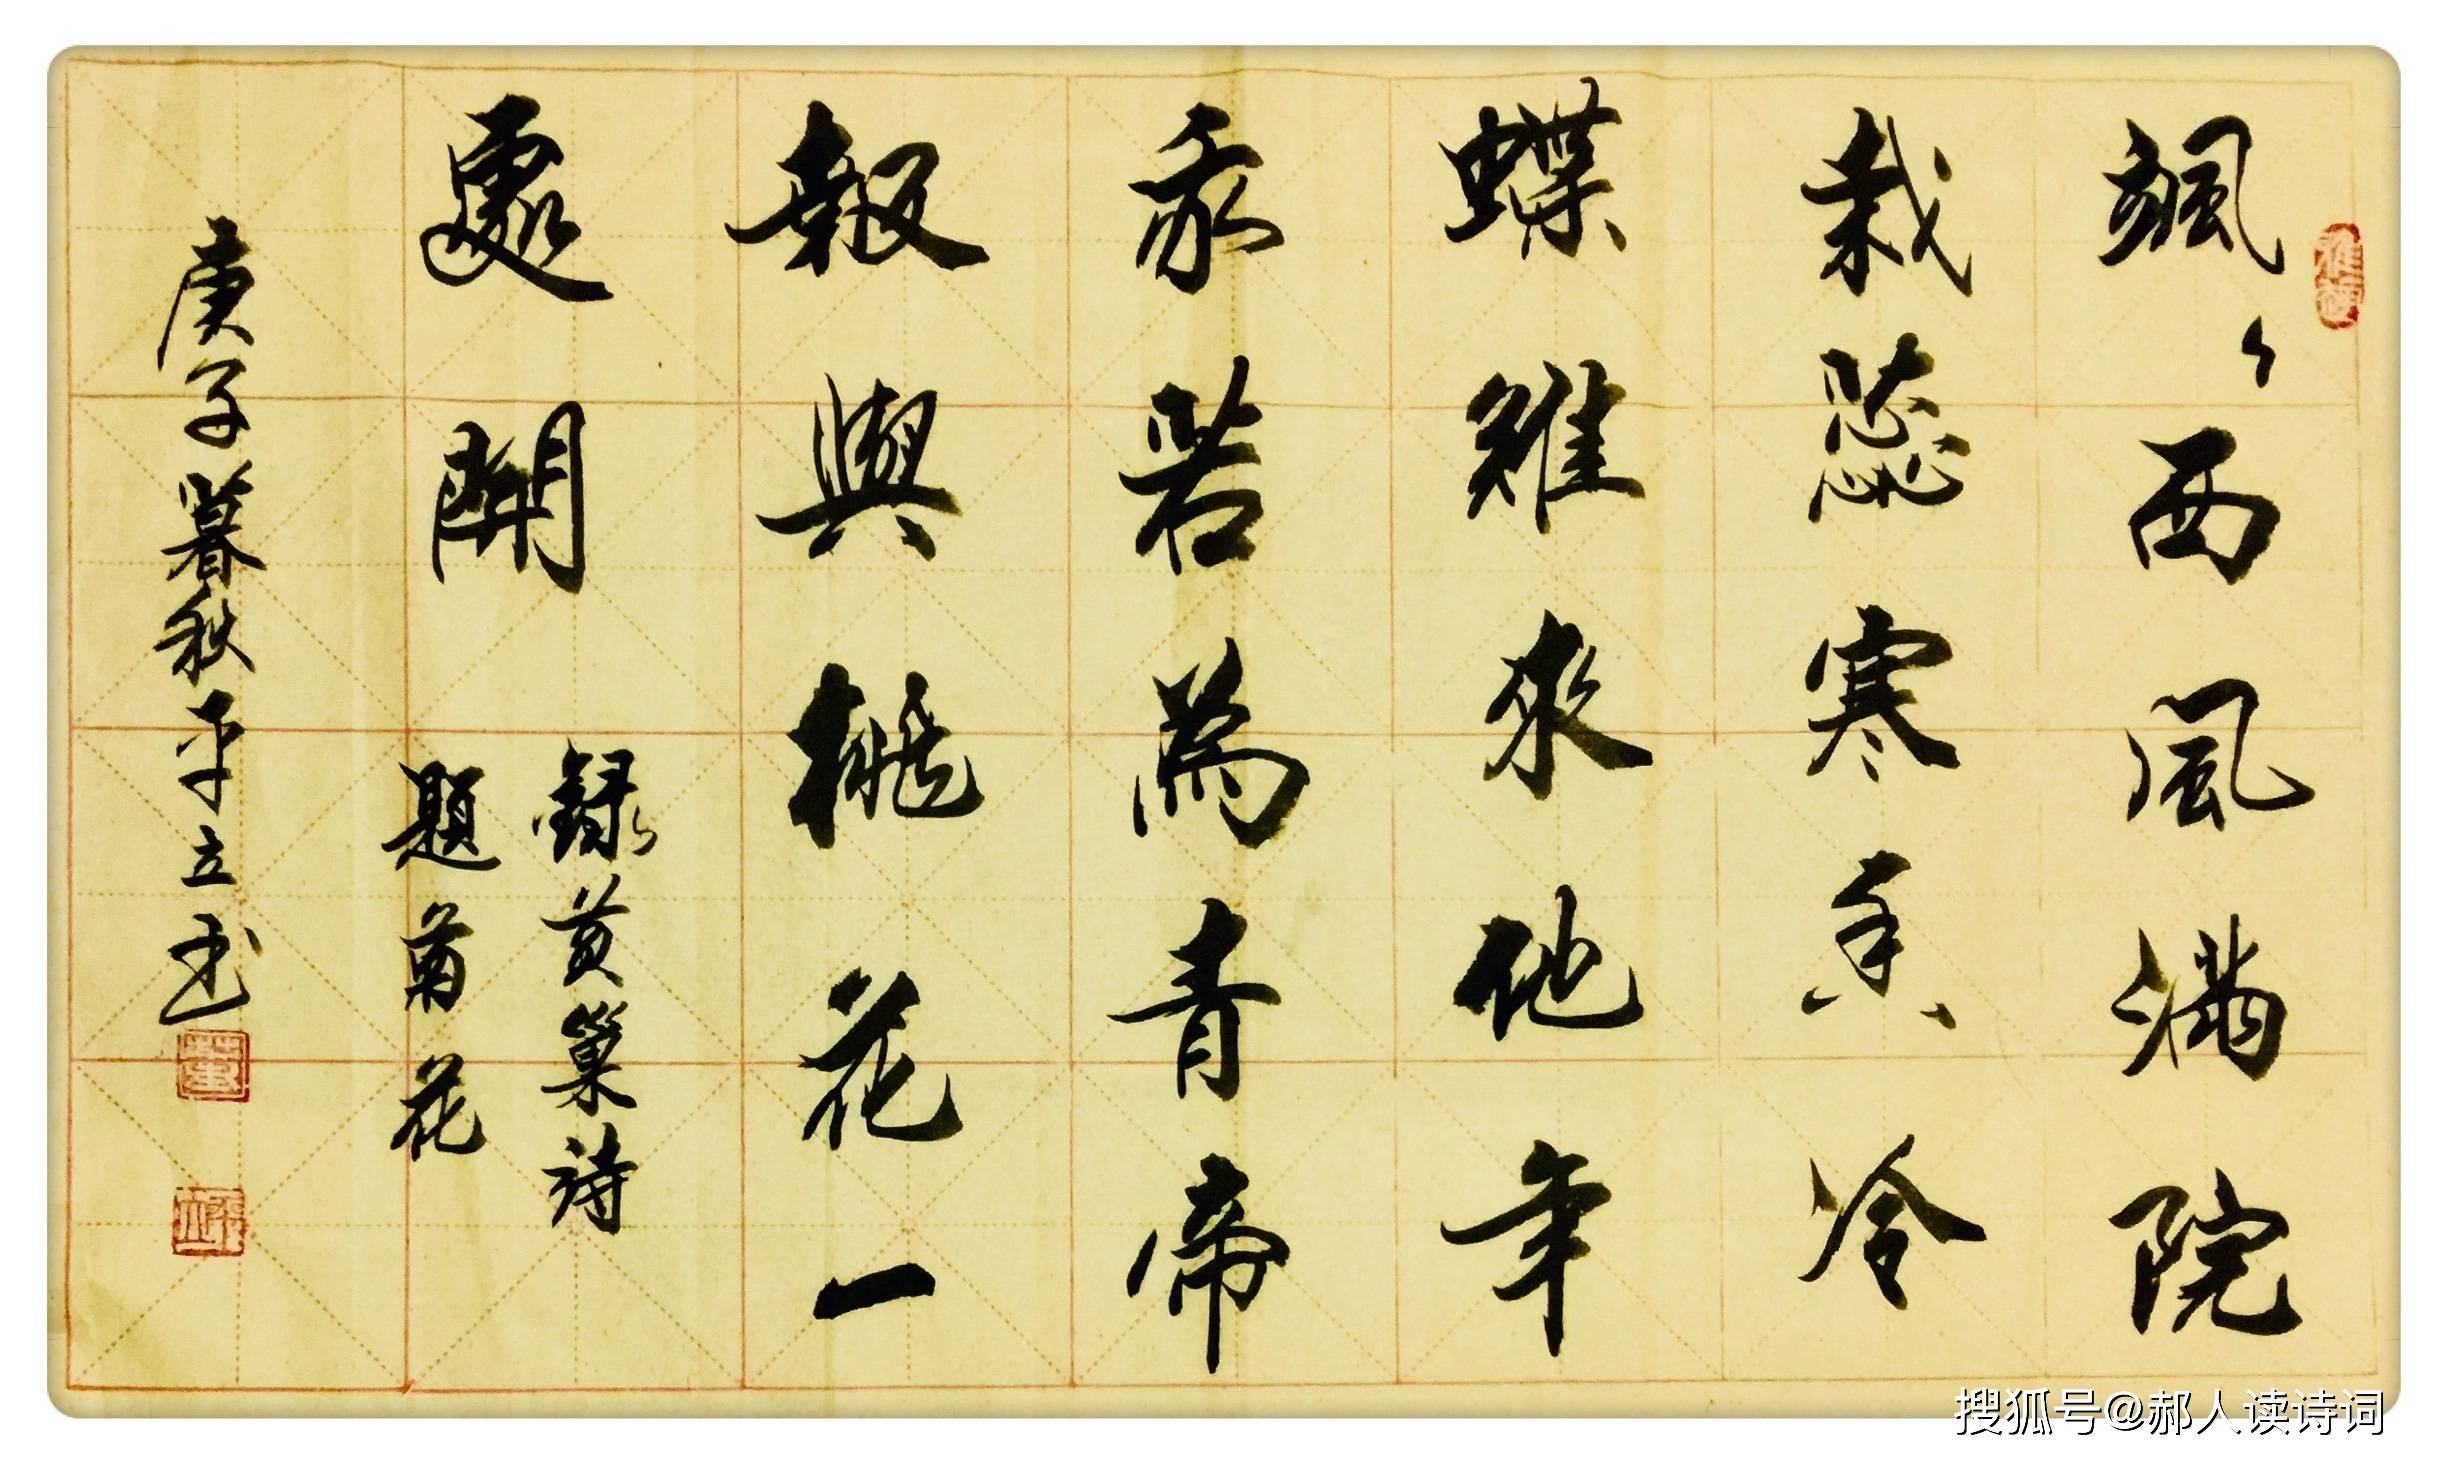 颯々西風滿院
栽蕊寒香冷
蝶難來他年
我若爲青帝
報與桃花一
處開
錄黃巢詩
題菊花
庚子暮秋平立书
搜狐号@郝人读诗词